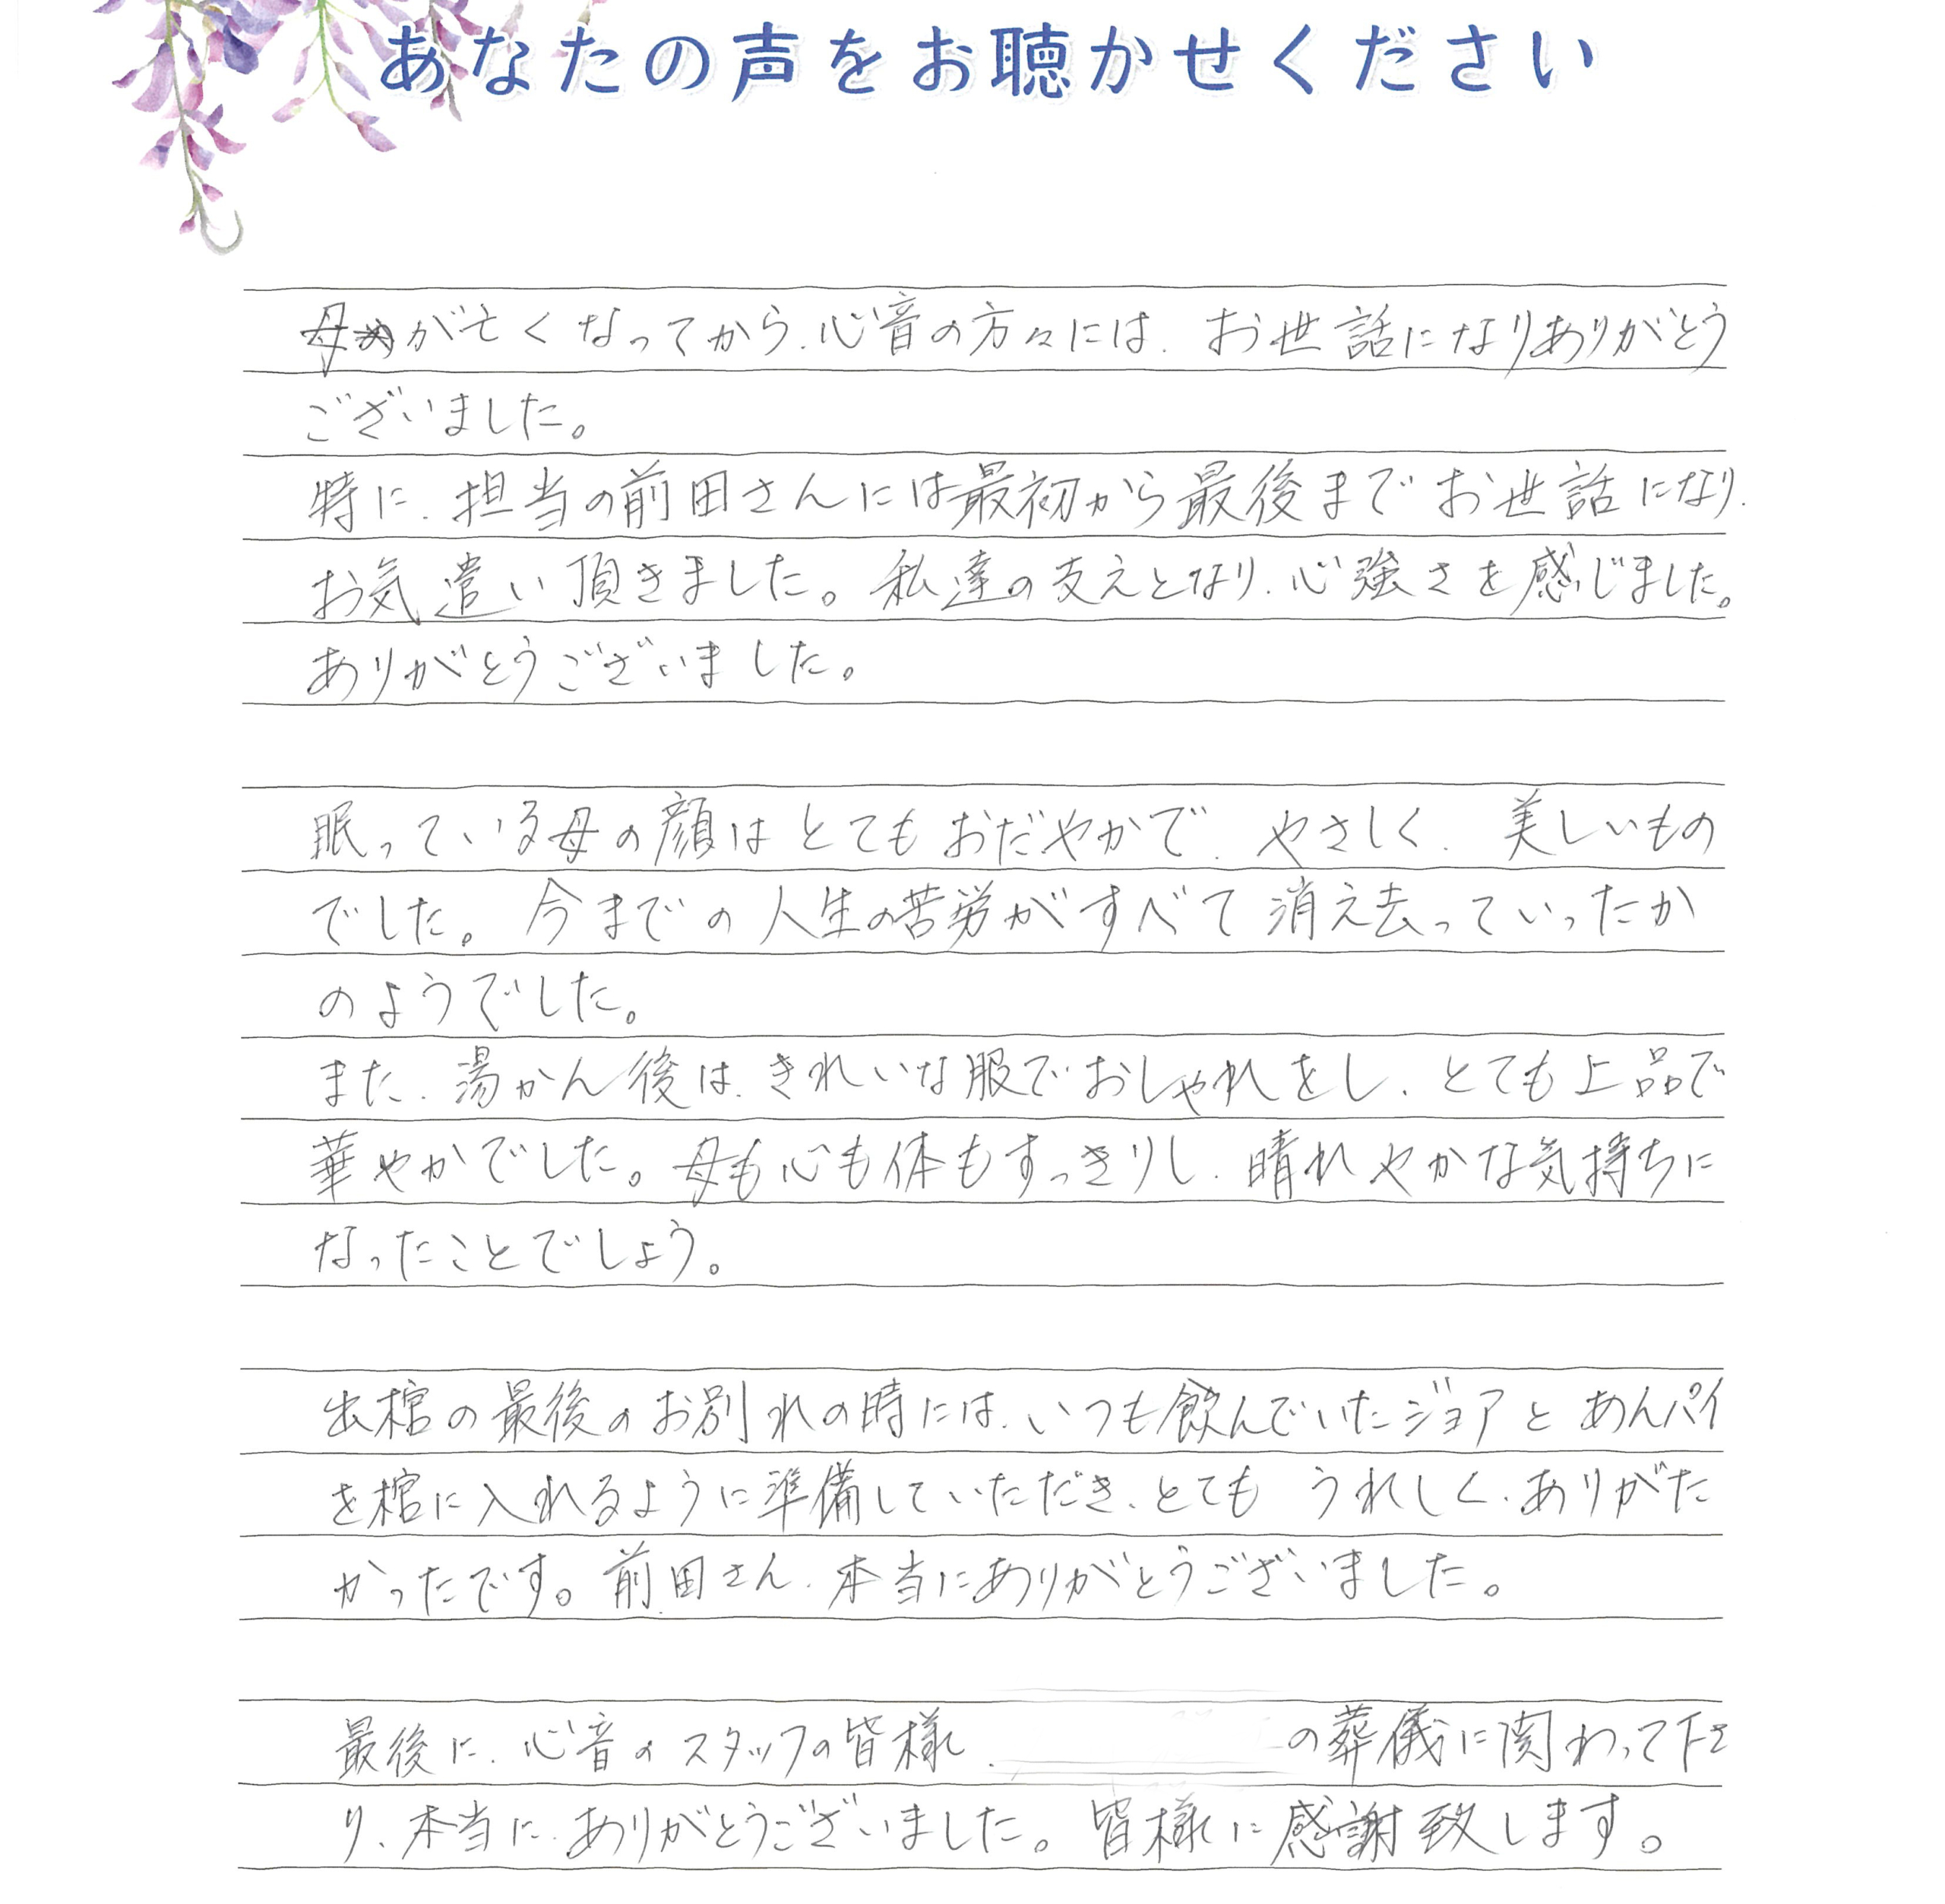 あなたの声をお聴かせください
母が亡くなってから、心音の方々には、お世話になりありがとう
ございました。
特に、担当の前田さんには最初から最後までお世話になり、
お気遣い頂きました。私達の支えとなり、心強さを感じました。
ありがとうございました。
眠っている母の顔はとてもおだやかで、やさしく、美しいもの
でした。今までの人生の苦労がすべて消え去っていったか
のようでした。
また、湯かん後は、きれいな服でおしゃれをし、とても上品で
華やかでした。母も心も体もすっきりし、晴れやかな気持ちに
なったことでしょう。
出棺の最後のお別れの時には、いつも飲んでいたジョアとあんパイ
を棺に入れるように準備していただき、とてもうれしく、ありがた
かったです。前田さん、本当にありがとうございました。
最後に、心音のスタッフの皆様、の葬儀に関わって下さ
り、本当に、ありがとうございました。皆様に感謝致します。